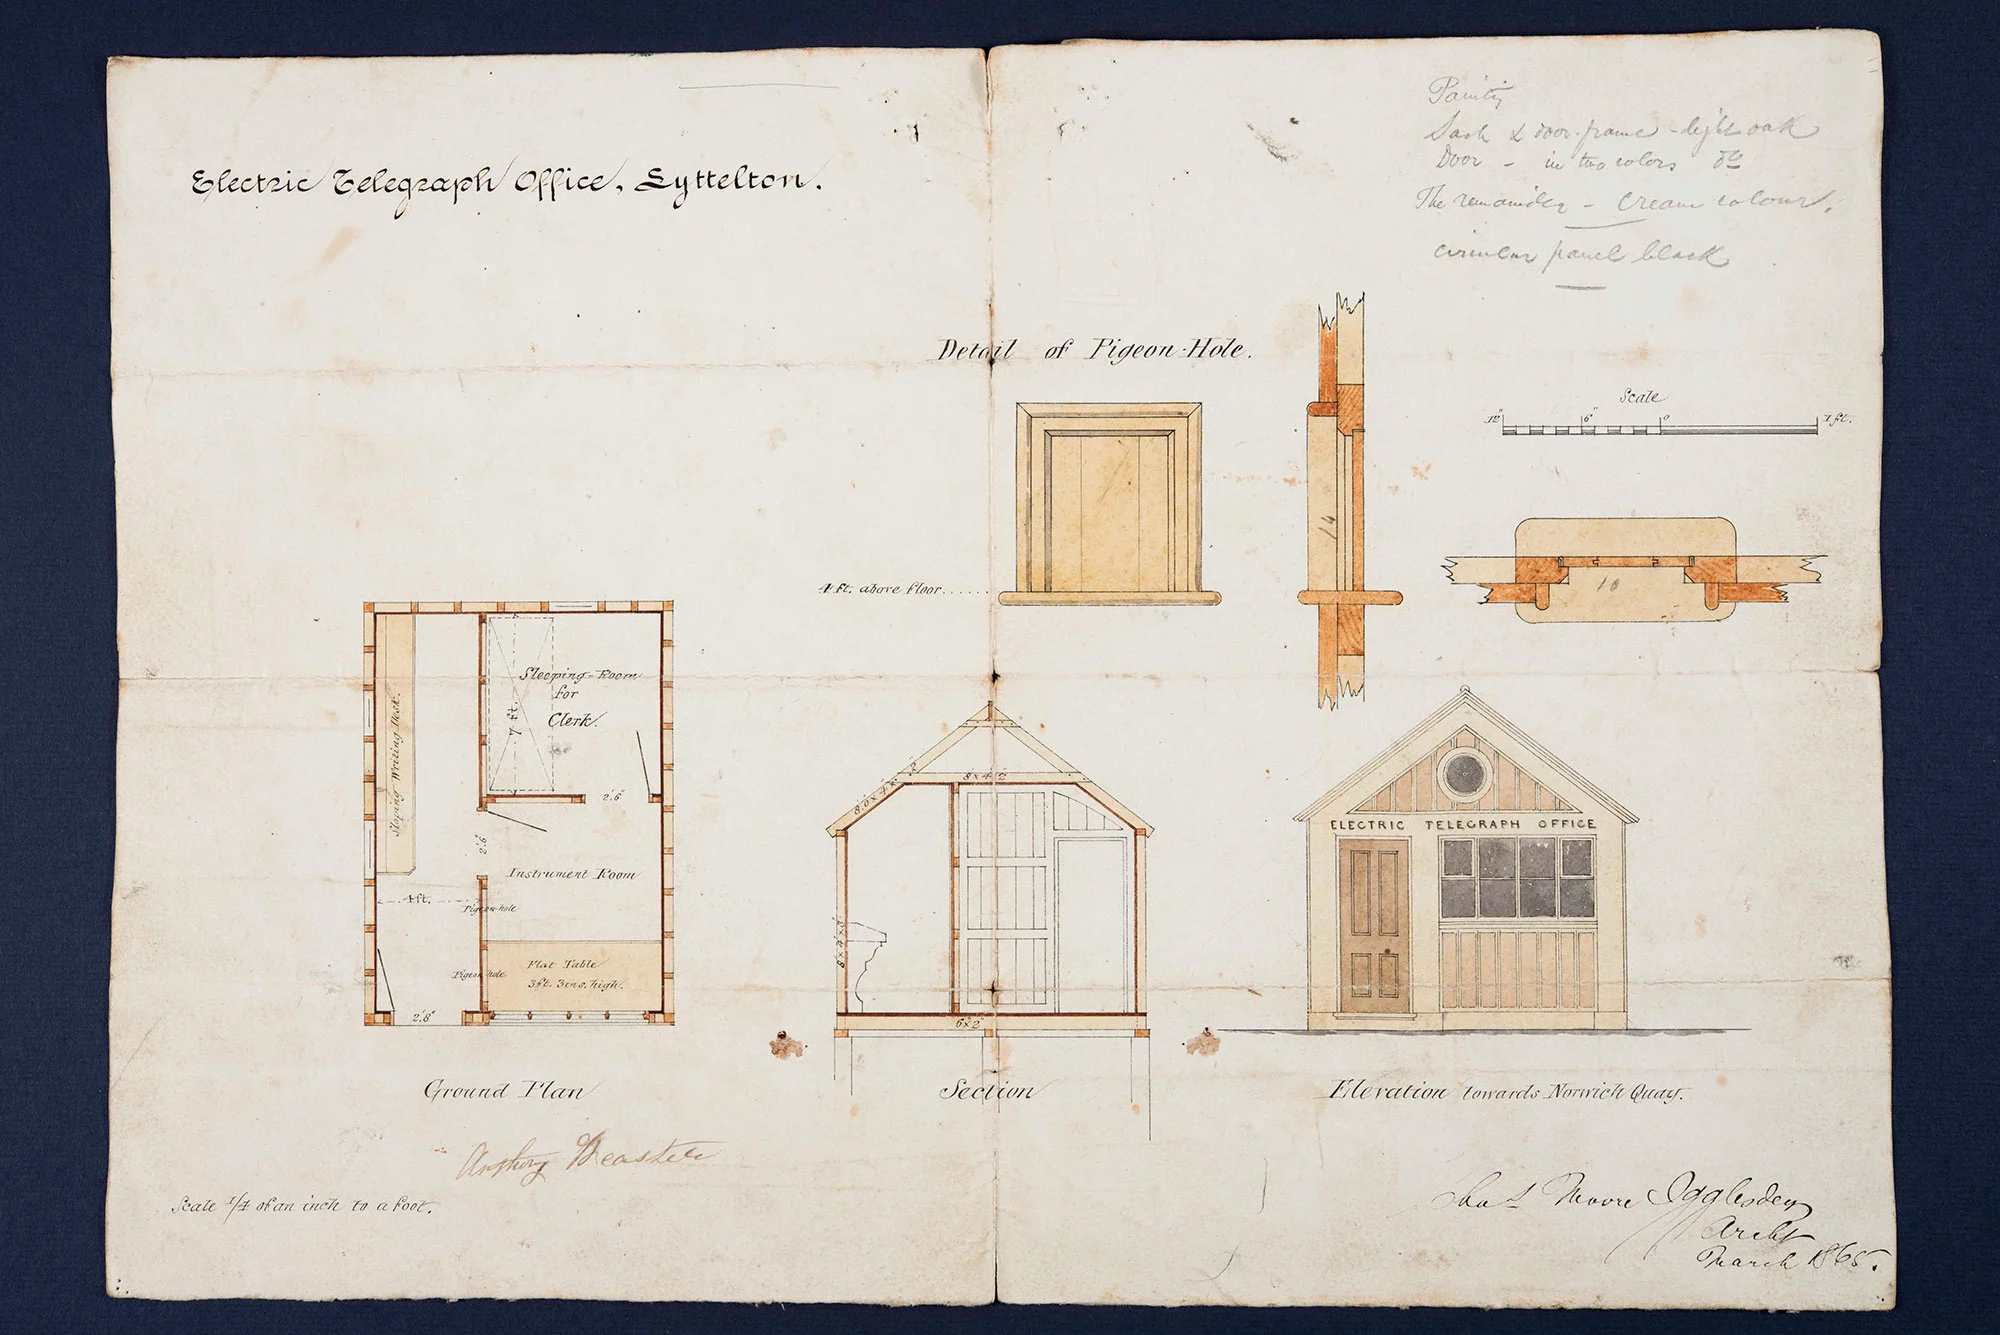 Electric Telegraph Office, Lyttelton.
Painting
Sash & door frame - light oak
Door - in two colors do
The remainder - cream colour.
circular panel black
Detail of Pigeon-Hole.
Scale
12" 6" 0 1 ft.
4 ft. above floor......
14
10
Sleeping-Room
for
Clerk.
7 ft.
Sloping Writing Desk.
2'.6"
2'.6"
Instrument Room
4 ft.
Pigeon-hole
Pigeon-hole
Flat Table
3 ft. 3 ins. high.
2'.8"
8 x 4 x 2
6 x 2
ELECTRIC TELEGRAPH OFFICE
Ground Plan
Section
Elevation towards Norwich Quay.
Scale 1/4 of an inch to a foot.
Moore
Archt
March 1865.